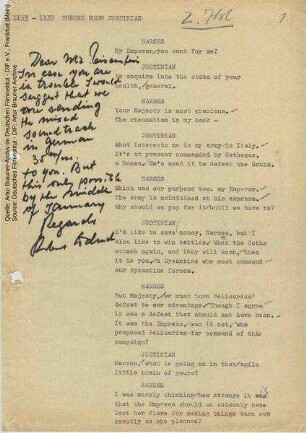 1153 - 1157 THRONE ROOM JUSTINIAN
NARSES
My Emperor, you sent for me?
JUSTINIAN
To enquire into the state of your
health, general.
NARSES
Your Majesty is most gracious.
The rheumatism in my back -
JUSTINIAN
What interests me is my army in Italy.
It's at present commanded by Cethegus,
a Roman. He's used it to defeat the Goths.
NARSES
Which was our purpose too, my Emperor.
The army is maintained at his expense.
Why should we pay for it until we have to?
JUSTINIAN
I'd like to save money, Narses, but I
also like to win battles. When the Goths
attack again, and they will soon, then
it is you, a Byzantine who must command
our Byzantine forces.
NARSES
But Majesty, we must turn Belisarius'
defeat to our advantage. Though I agree
it was a defeat that should not have been.
It was the Empress, was it not, who
proposed Belisarius for command of this
campaign?
JUSTINIAN
Narses, what is going on in that agile
little brain of yours?
NARSES
I was merely thinking how strange it is
that the Empress should so suddenly have
lost her flare for making things turn out
exactly as she planned?
Dear Mr
In case you are
in trouble I would
suggest that we
are sending
the mixed
soundtrack
in German
35 mm
to you. But
this only possible
by the middle
of January
Regards
Quelle: Artur Brauner-Archiv im Deutschen Filminstitut - DIF e.V., Frankfurt (Main)
Source: Deutsches Filminstitut - DIF / Artur Brauner Archive